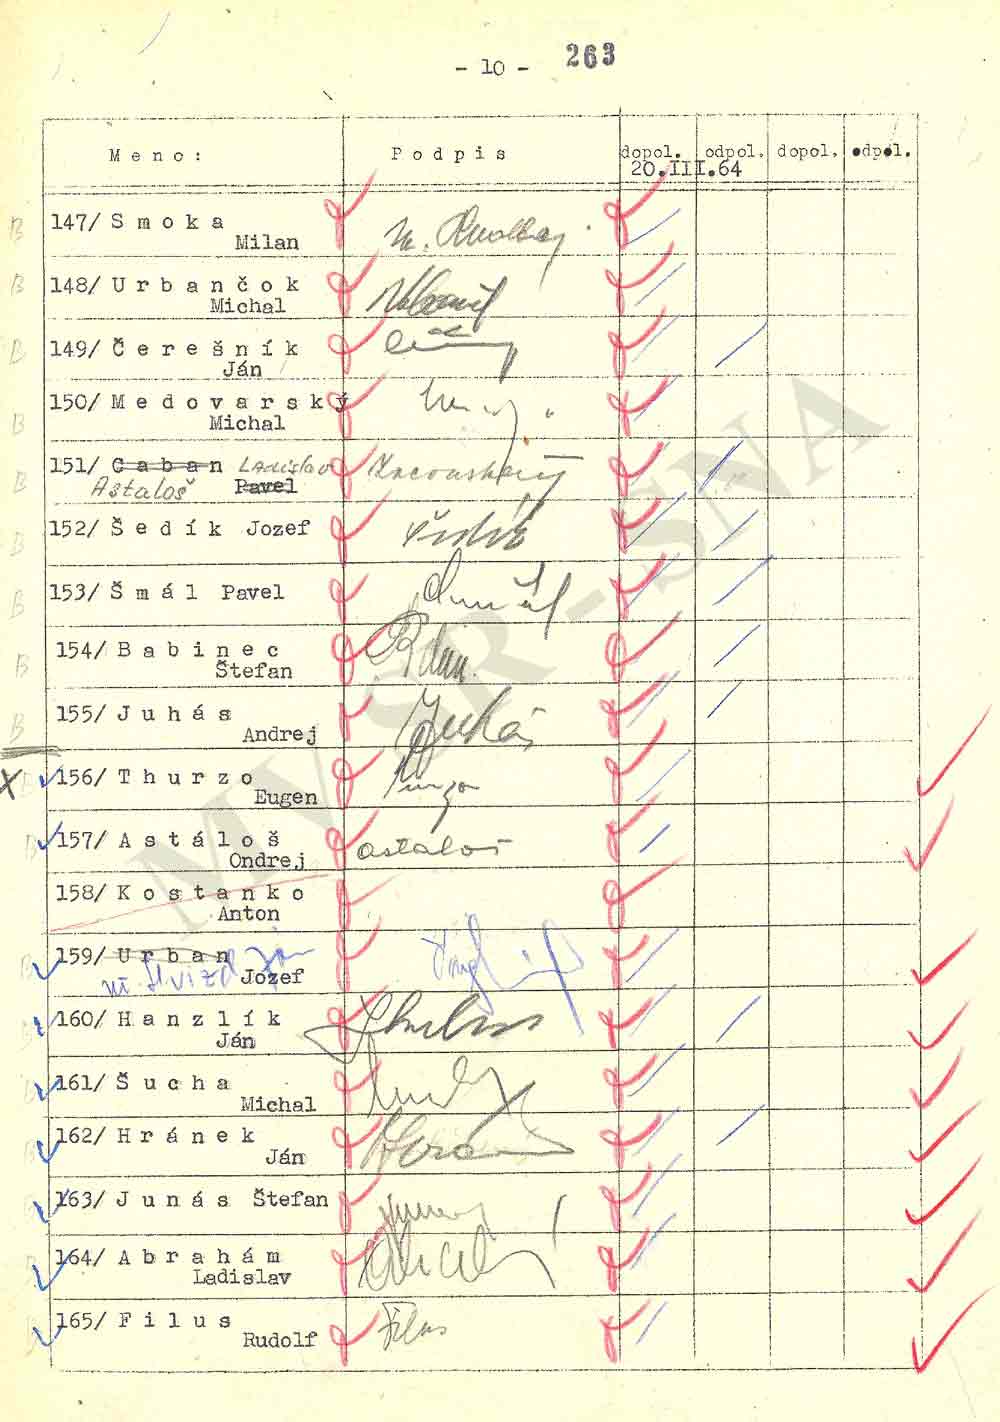 - 10 - 263
Meno: Podpis dopol. odpol. dopol. odpol.
20.III.64
147/ Smoka
Milan
148/ Urbančok
Michal
149/ Čerešník
Ján
150/ Medovarský
Michal
151/ Caban Ladislav
Astaloš Pavel
152/ Šedík Jozef
153/ Šmál Pavel
154/ Babinec
Štefan
155/ Juhás Juhás
Andrej
156/ Thurzo
Eugen
157/ Astáloš astaloš
Ondrej
158/ Kostanko
Anton
159/ Urban
Hvizd Ján Jozef
160/ Hanzlík
Ján
161/ Šucha
Michal
162/ Hránek
Ján
163/ Junás Štefan
164/ Abrahám
Ladislav
165/ Filus Filus
Rudolf
MV SR - SNA